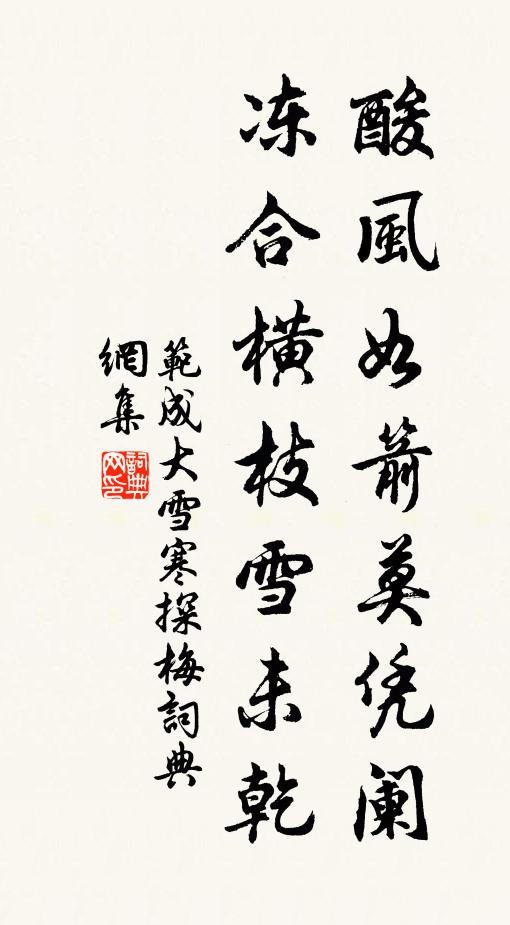 酸風如箭莫凭阑
冻合橫枝雪未乾
範成大雪寒探梅詞典
網集
詞典网印